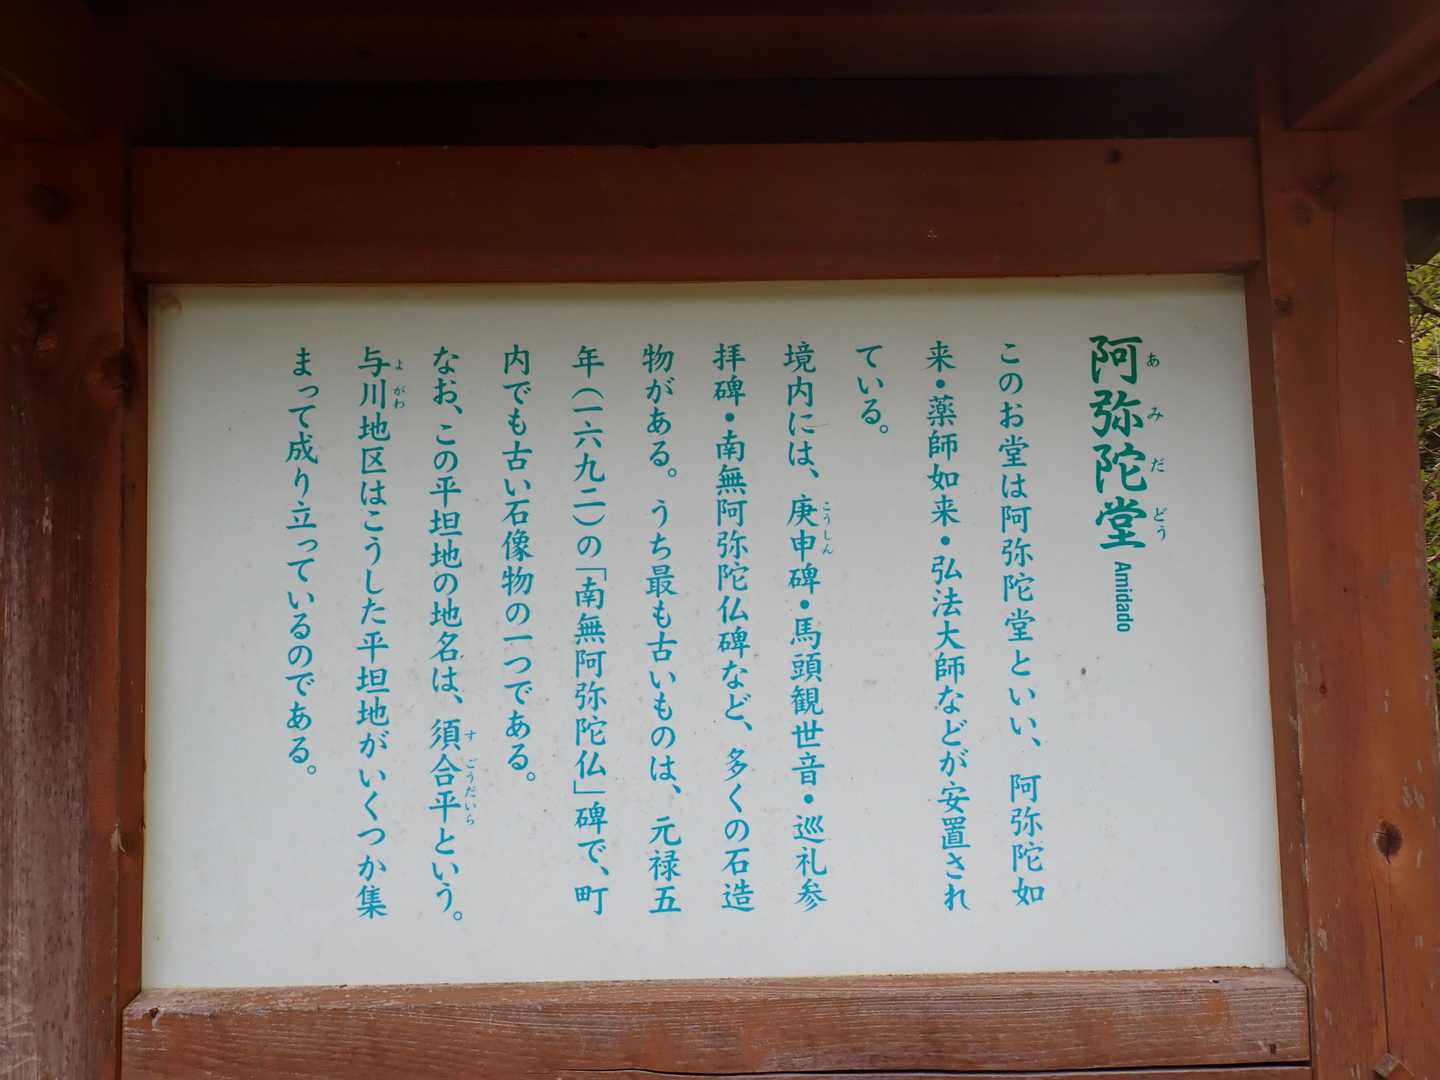 阿弥陀堂 Amidado
あみだどう
このお堂は阿弥陀堂といい、阿弥陀如
来・薬師如来・弘法大師などが安置され
ている。
境内には、庚申碑・馬頭観世音・巡礼参
こうしん
拝碑・南無阿弥陀仏碑など、多くの石造
物がある。うち最も古いものは、元禄五
年(一六九二)の「南無阿弥陀仏」碑で、町
内でも古い石像物の一つである。
なお、この平坦地の地名は、須合平という。
すごうだいら
与川地区はこうした平坦地がいくつか集
よがわ
まって成り立っているのである。